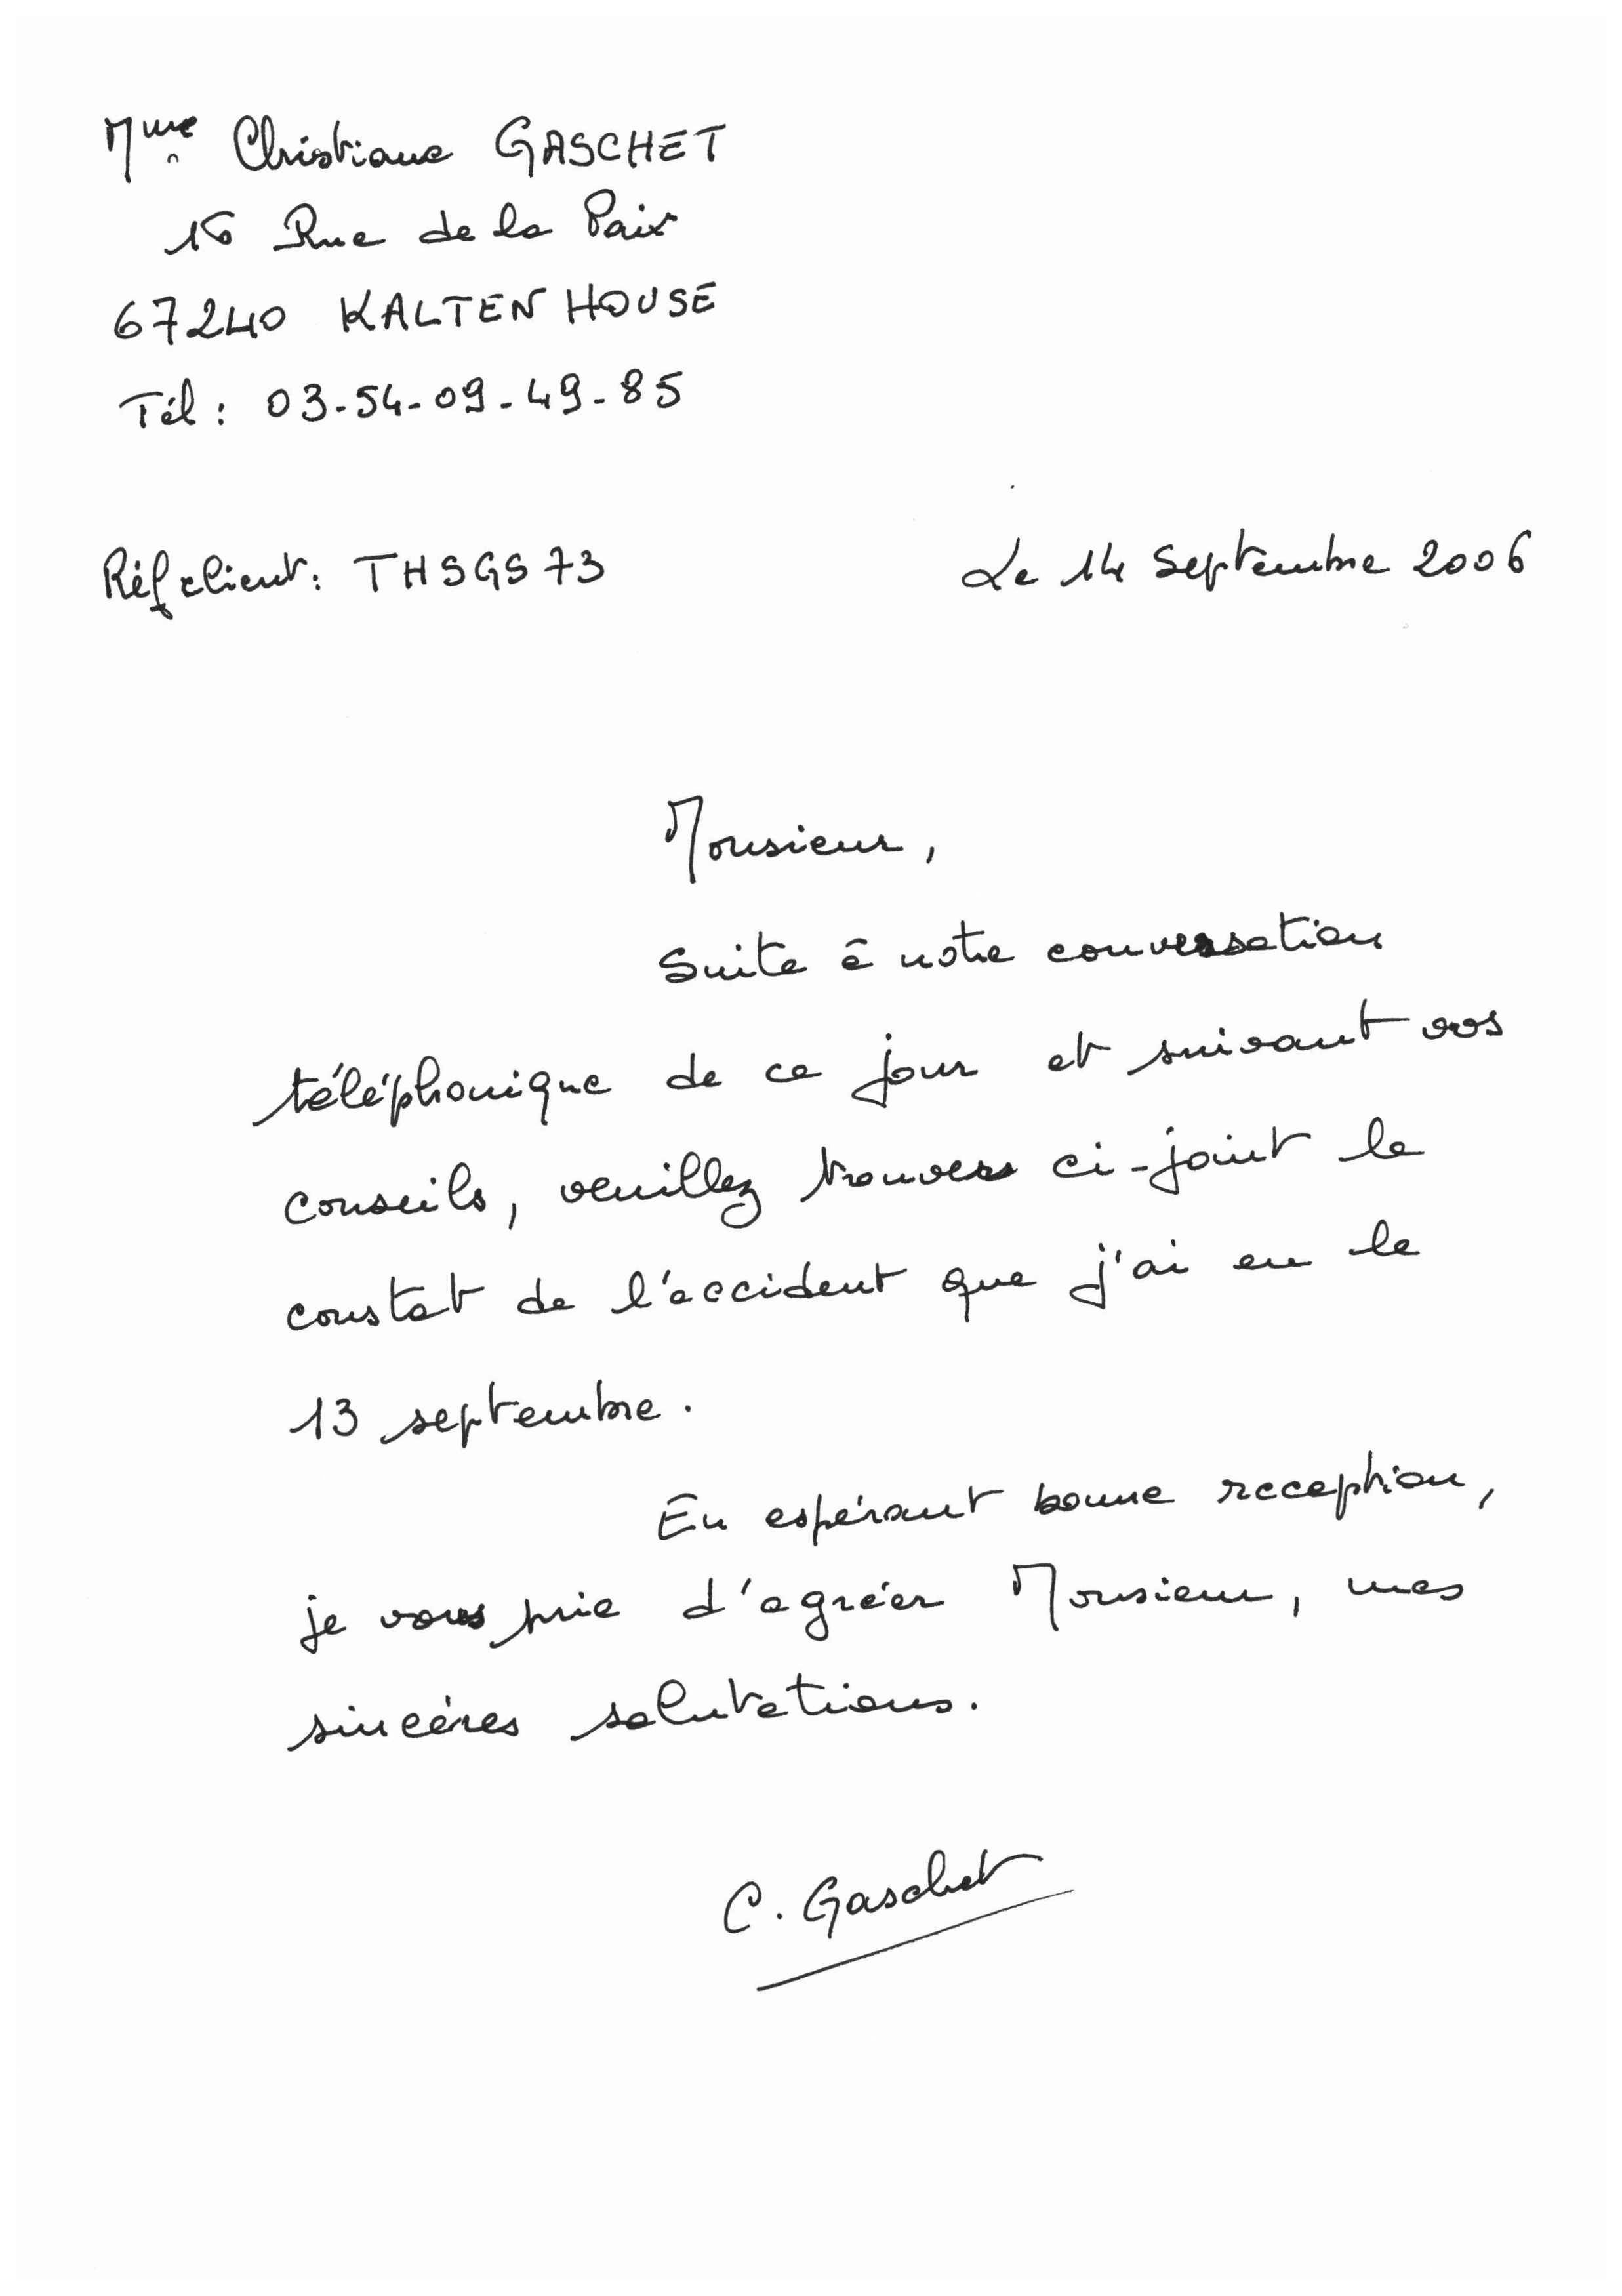 Mme Christiane GASCHET
16 Rue de la Paix
67240 KALTENHOUSE
Tél : 03-54-09-49-85
Réf client : THSGS73
Le 14 Septembre 2006
Monsieur,
Suite à notre conversation
téléphonique de ce jour et suivant vos
conseils, veuillez trouver ci-joint le
constat de l'accident que j'ai eu le
13 septembre.
En espérant bonne reception,
je vous prie d'agréer Monsieur, mes
sincéres salutations.
C. Gaschet